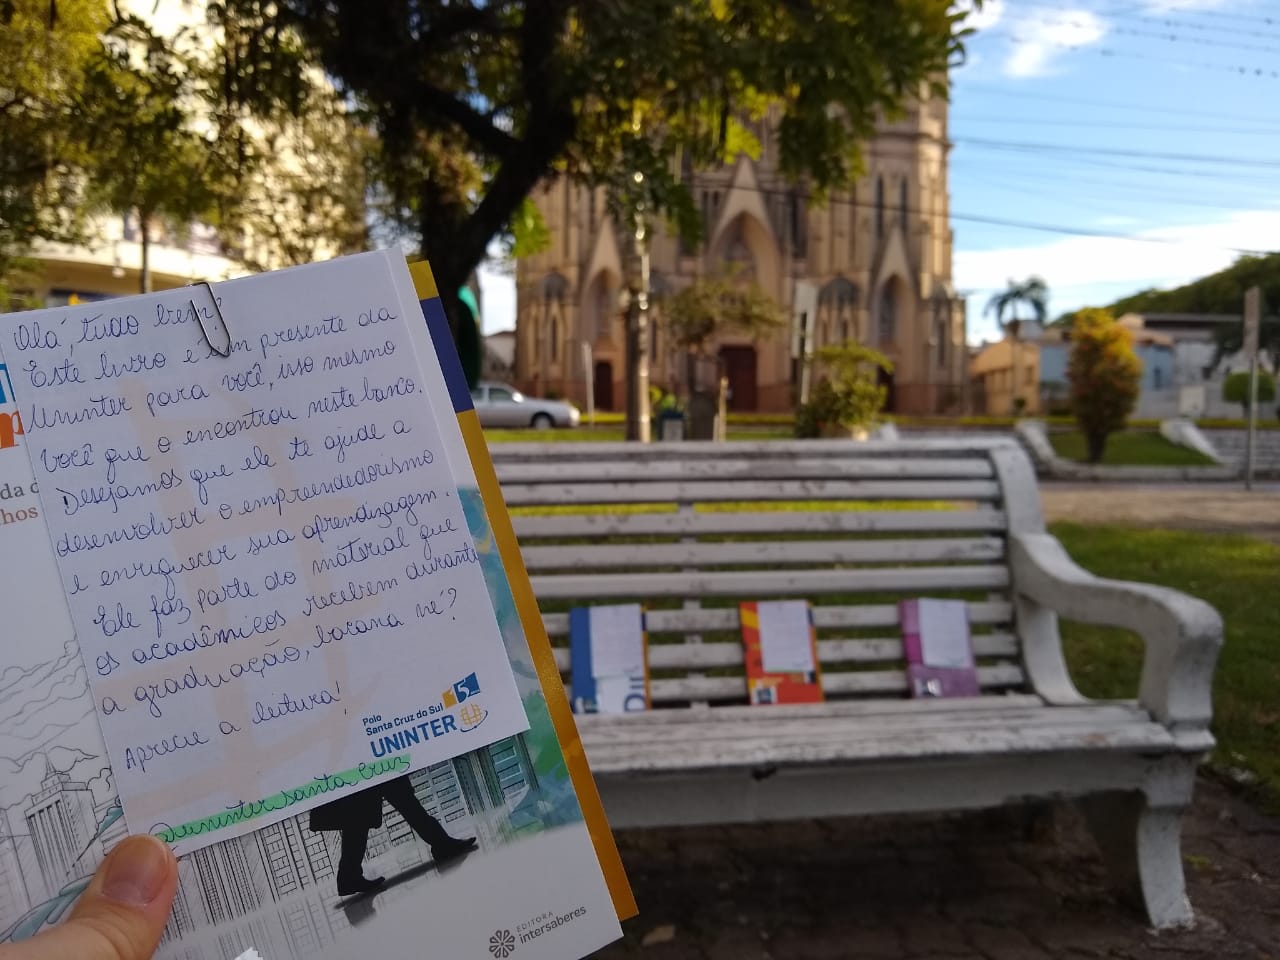 Olá, tudo bem?
Este livro é um presente da
Uninter para você, isso mesmo
você que o encontrou neste banco.
Desejamos que ele te ajude a
desenvolver o empreendedorismo
e enriquecer sua aprendizagem.
Ele faz parte do material que
os acadêmicos recebem durante
a graduação, bacana né?
Aprecie a leitura!
15
Polo
Santa Cruz do Sul
UNINTER
@uninter santa cruz
da d
hos
EDITORA
intersaberes